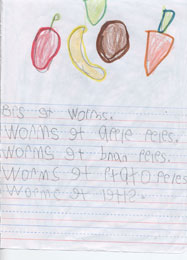 Bis gt worms.
Worms gt aple peles.
Worms gt bnan peles.
Worms gt ptato peles
Worms gt